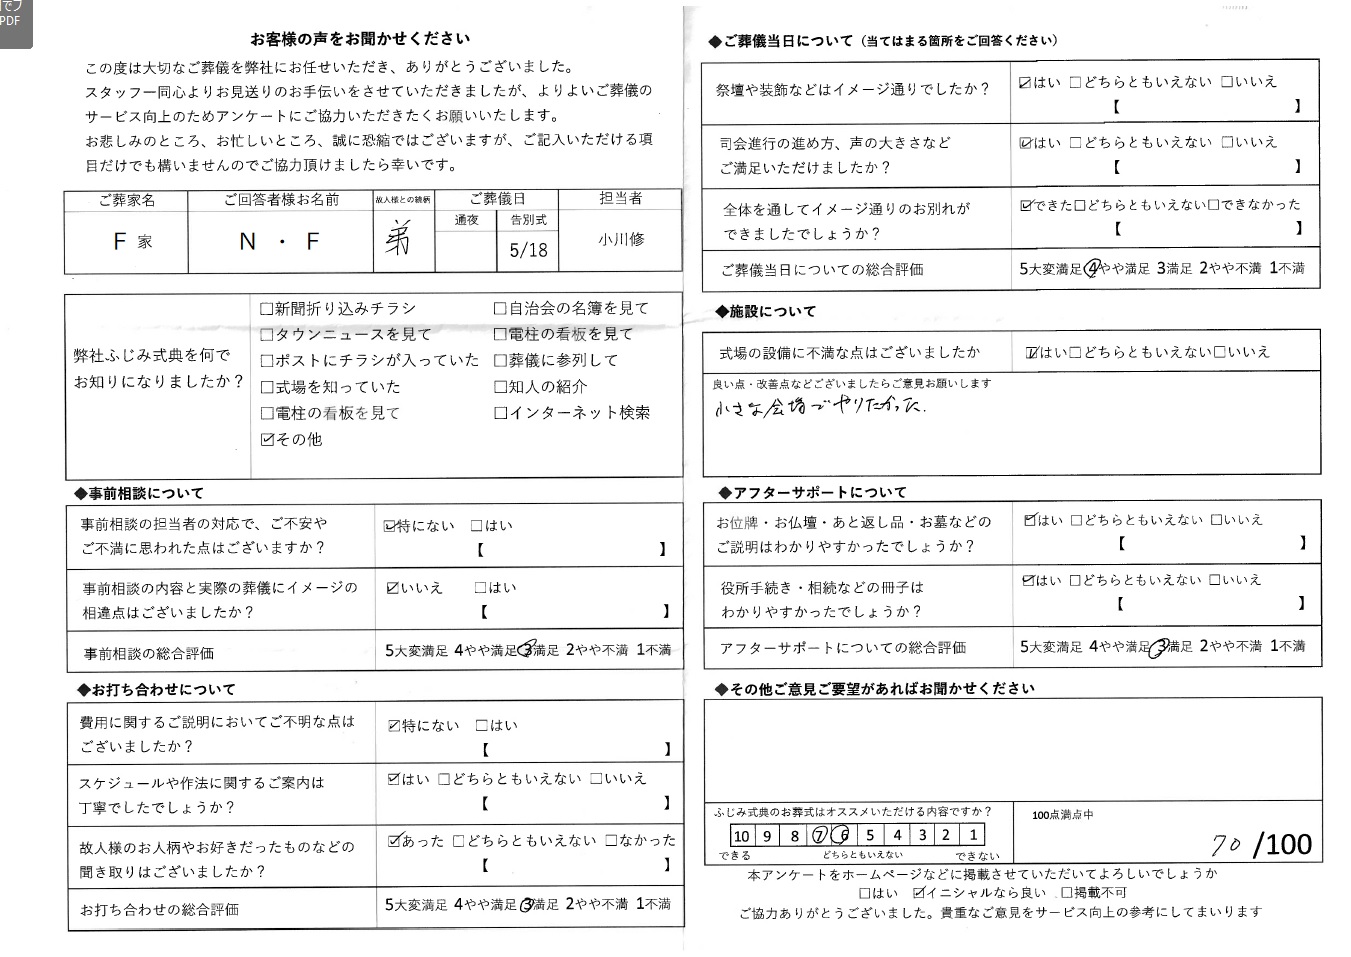 でフ
PDF
お客様の声をお聞かせください
この度は大切なご葬儀を弊社にお任せいただき、ありがとうございました。
スタッフ一同心よりお見送りのお手伝いをさせていただきましたが、よりよいご葬儀の
サービス向上のためアンケートにご協力いただきたくお願いいたします。
お悲しみのところ、お忙しいところ、誠に恐縮ではございますが、ご記入いただける項
目だけでも構いませんのでご協力頂けましたら幸いです。
ご葬家名 ご回答者様お名前 故人様との続柄 ご葬儀日 担当者
通夜 告別式
F 家 N ・ F 弟 5/18 小川修
弊社ふじみ式典を何で
お知りになりましたか？
☐新聞折り込みチラシ ☐自治会の名簿を見て
☐タウンニュースを見て ☐電柱の看板を見て
☐ポストにチラシが入っていた ☐葬儀に参列して
☐式場を知っていた ☐知人の紹介
☐電柱の看板を見て ☐インターネット検索
☑その他
◆事前相談について
事前相談の担当者の対応で、ご不安や
ご不満に思われた点はございますか？
☑特にない ☐はい
【 】
事前相談の内容と実際の葬儀にイメージの
相違点はございましたか？
☑いいえ ☐はい
【 】
事前相談の総合評価 5大変満足 4やや満足 3満足 2やや不満 1不満
◆お打ち合わせについて
費用に関するご説明においてご不明な点は
ございましたか？
☑特にない ☐はい
【 】
スケジュールや作法に関するご案内は
丁寧でしたでしょうか？
☑はい ☐どちらともいえない ☐いいえ
【 】
故人様のお人柄やお好きだったものなどの
聞き取りはございましたか？
☑あった ☐どちらともいえない ☐なかった
【 】
お打ち合わせの総合評価 5大変満足 4やや満足 3満足 2やや不満 1不満
◆ご葬儀当日について（当てはまる箇所をご回答ください）
祭壇や装飾などはイメージ通りでしたか？
☑はい ☐どちらともいえない ☐いいえ
【 】
司会進行の進め方、声の大きさなど
ご満足いただけましたか？
☑はい ☐どちらともいえない ☐いいえ
【 】
全体を通してイメージ通りのお別れが
できましたでしょうか？
☑できた☐どちらともいえない☐できなかった
【 】
ご葬儀当日についての総合評価 5大変満足 4やや満足 3満足 2やや不満 1不満
◆施設について
式場の設備に不満な点はございましたか ☑はい☐どちらともいえない☐いいえ
良い点・改善点などございましたらご意見お願いします
小さな会場でやりたかった.
◆アフターサポートについて
お位牌・お仏壇・あと返し品・お墓などの
ご説明はわかりやすかったでしょうか？
☑はい ☐どちらともいえない ☐いいえ
【 】
役所手続き・相続などの冊子は
わかりやすかったでしょうか？
☑はい ☐どちらともいえない ☐いいえ
【 】
アフターサポートについての総合評価 5大変満足 4やや満足 3満足 2やや不満 1不満
◆その他ご意見ご要望があればお聞かせください
ふじみ式典のお葬式はオススメいただける内容ですか？
10 9 8 7 6 5 4 3 2 1
できる どちらともいえない できない
100点満点中
70 /100
本アンケートをホームページなどに掲載させていただいてよろしいでしょうか
☐はい ☑イニシャルなら良い ☐掲載不可
ご協力ありがとうございました。貴重なご意見をサービス向上の参考にしてまいります